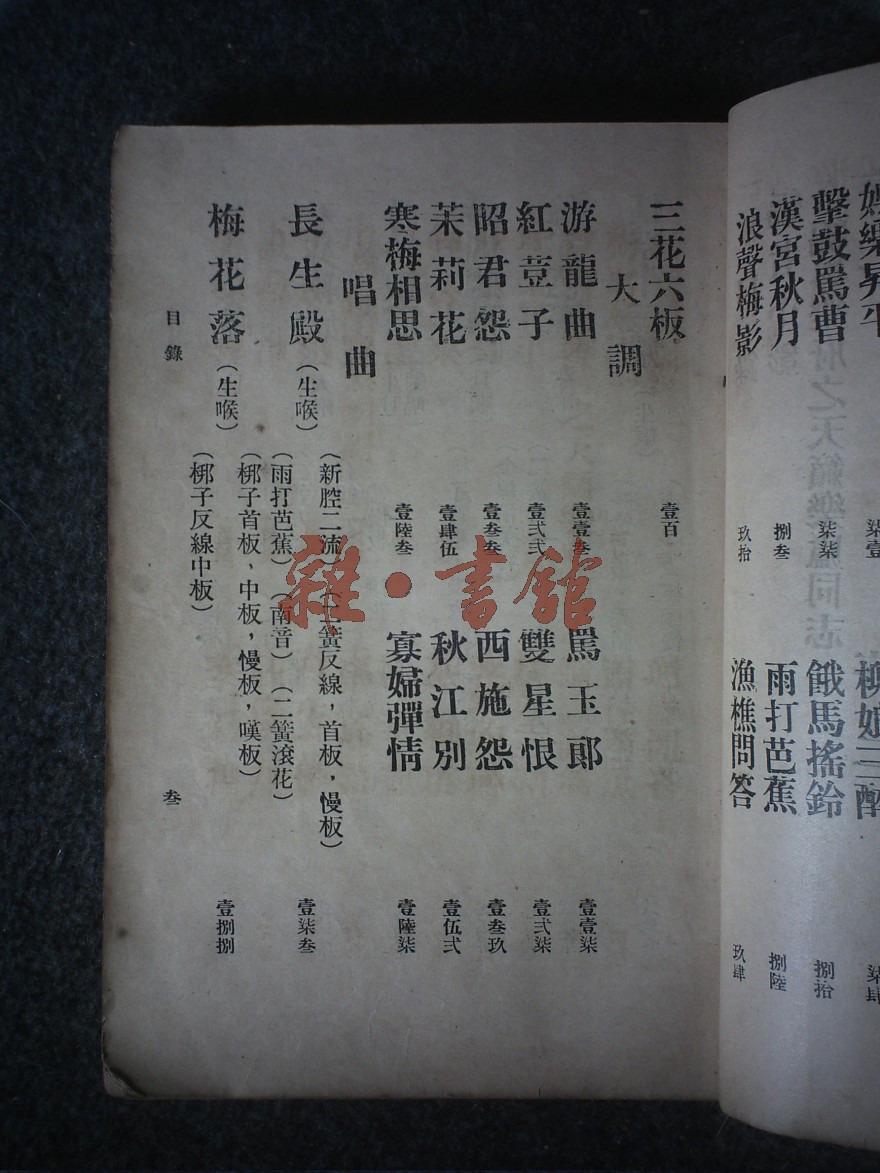 昇平
柒壹
擊鼓罵曹
柒柒
餓馬搖鈴
捌拾
漢宮秋月
捌叁
雨打芭蕉
捌陸
浪聲梅影
玖拾
漁樵問答
玖肆
三花六板
壹百
大調
游龍曲
壹壹叁
罵玉郎
壹壹柒
紅荳子
壹弍弍
雙星恨
壹弍柒
昭君怨
壹叁叁
西施怨
壹叁玖
茉莉花
壹肆伍
秋江別
壹伍弍
寒梅相思
壹陸叁
寡婦彈情
壹陸柒
唱曲
長生殿(生喉)
(新腔二流)(二簧反線,首板,慢板)
(雨打芭蕉)(南音)(二簧滾花)
壹柒叁
梅花落(生喉)
(梆子首板、中板,慢板,嘆板)
(梆子反線中板)
壹捌捌
目錄
叁
雜·書館